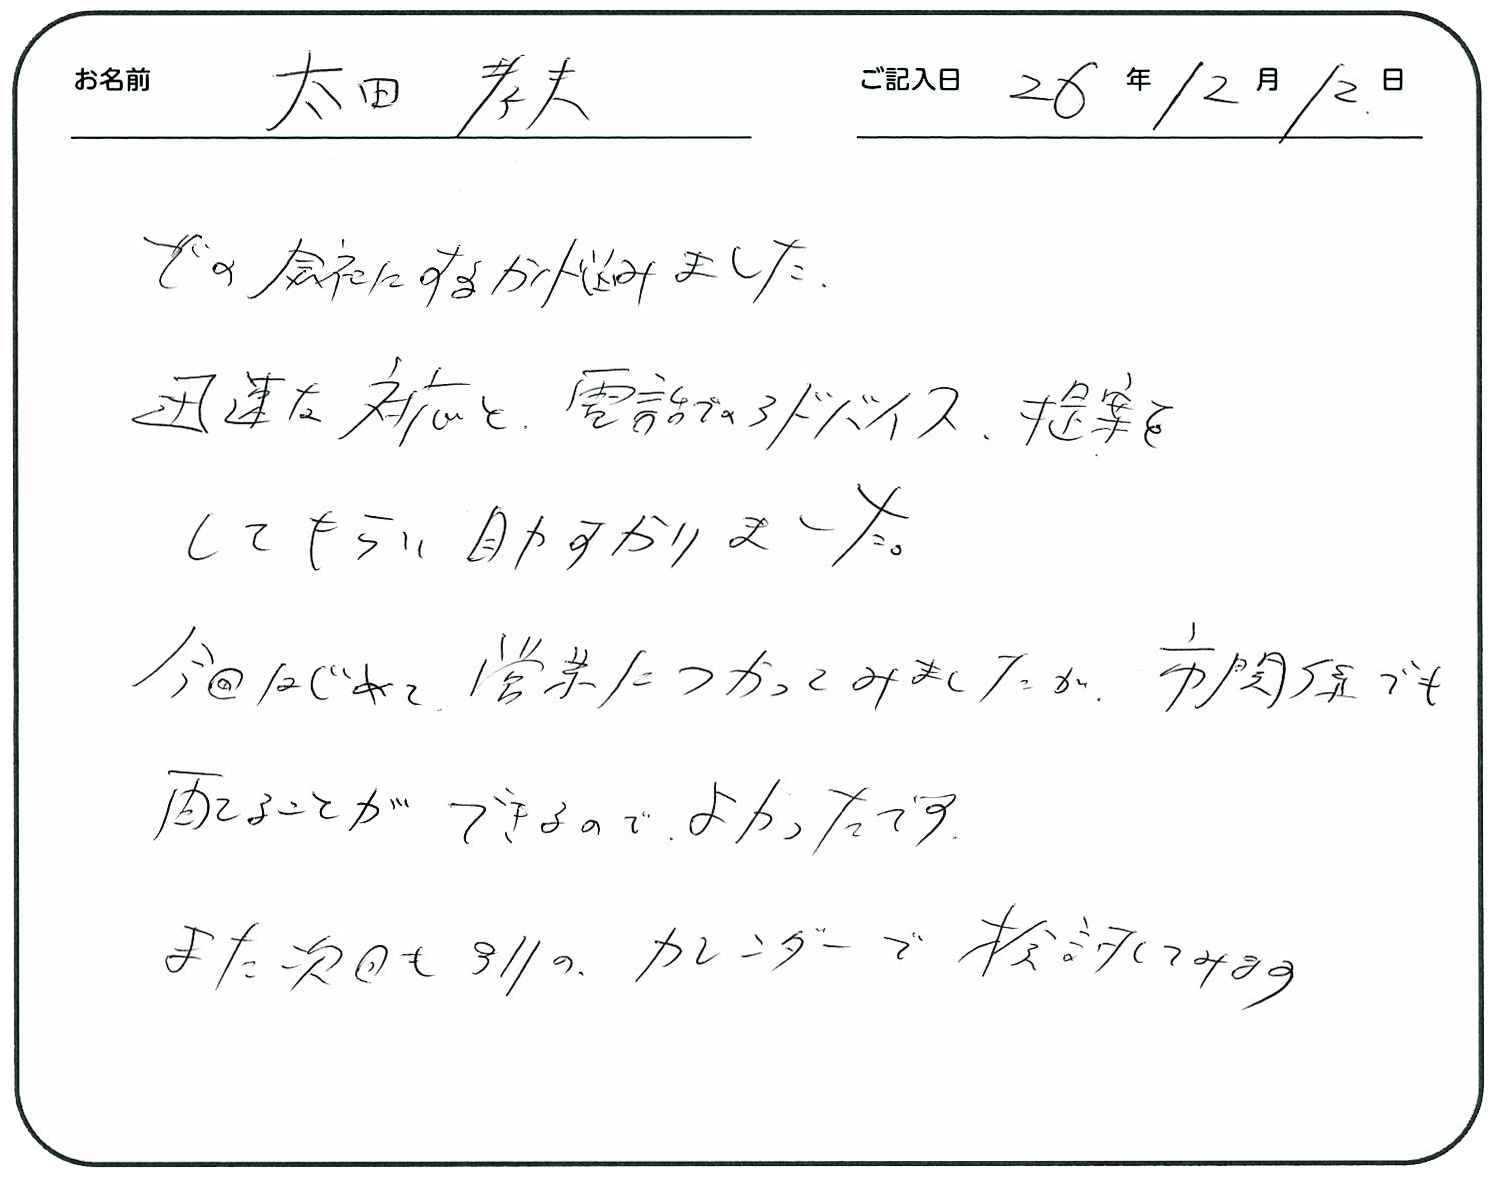 お名前 太田 孝夫 ご記入日 26年12月12日
どの会社にするか悩みました.
迅速な対応と、電話でのアドバイス、提案を
してもらい助すかりました。
今回はじめて、営業につかってみましたが、市関係でも
配てることができるので、よかったです.
また次回も別の、カレンダーで検討してみます